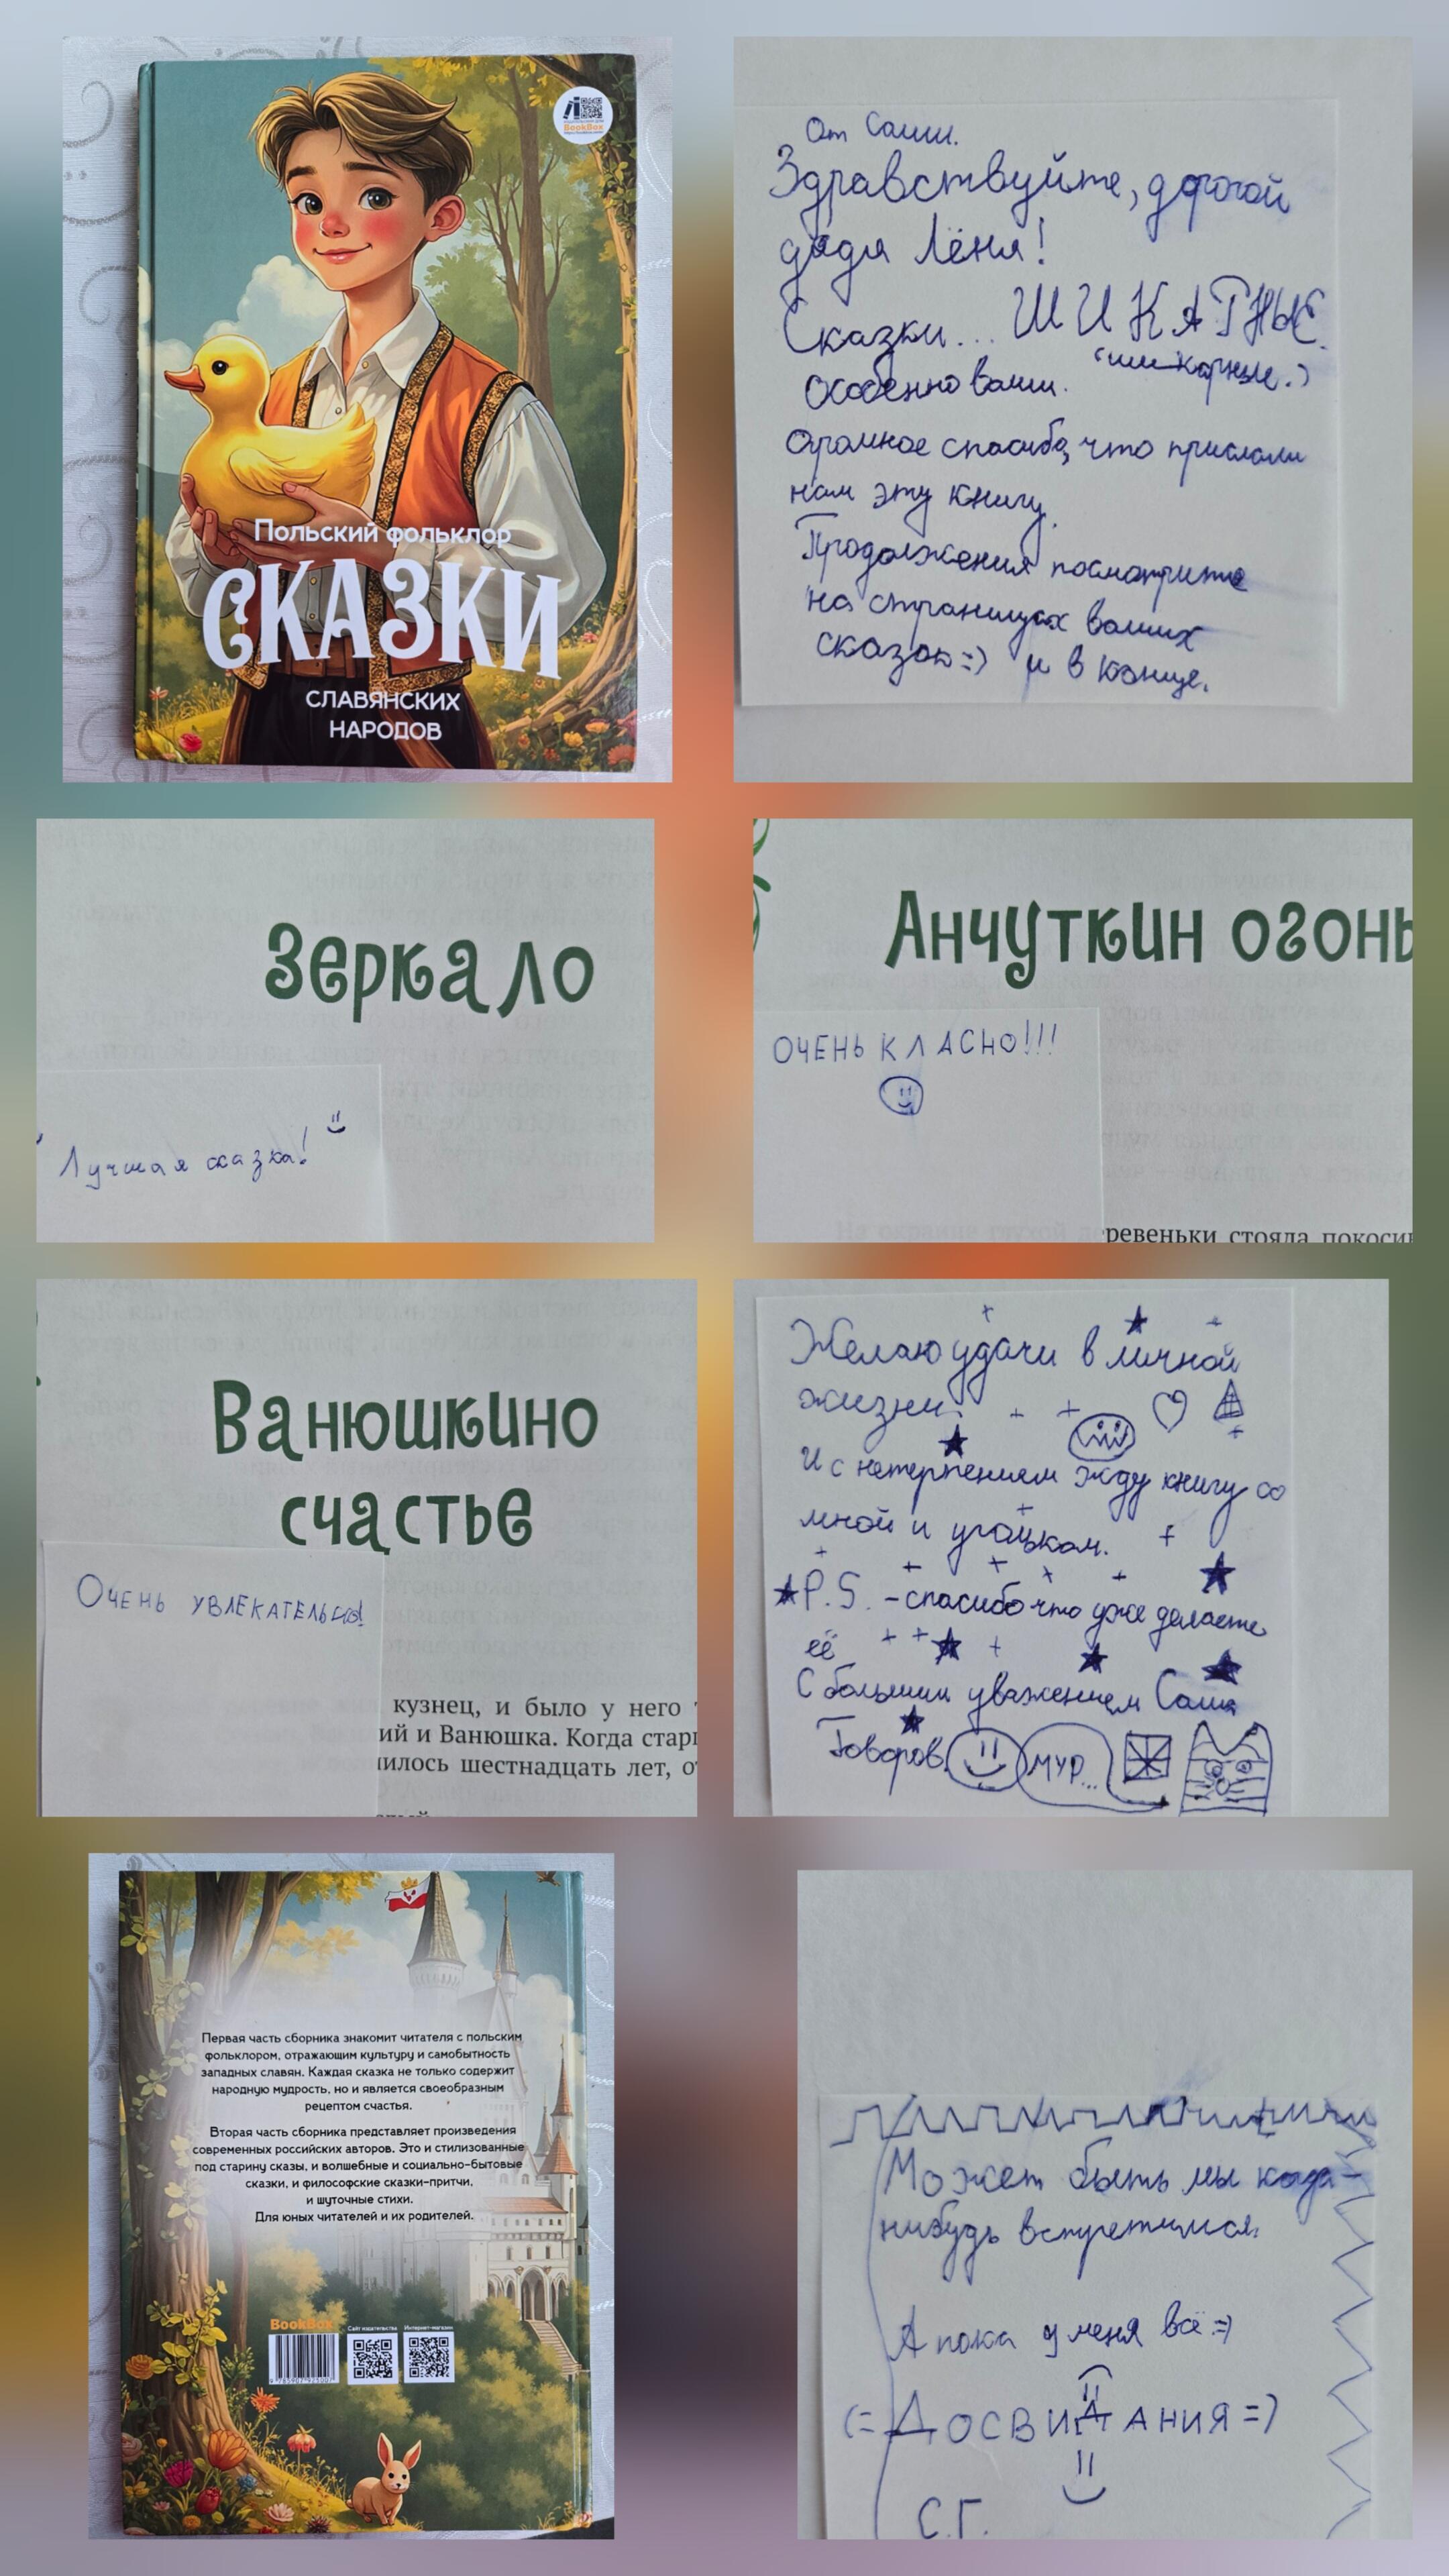 BookBox
Польский фольклор
СКАЗКИ
СЛАВЯНСКИХ
НАРОДОВ
От Саши.
Здравствуйте, дорогой
дядя Лёня!
Сказки... ШИКАРНЫЕ.
Особенно ваши.
огромное спасибо, что прислали
нам эту книгу.
Продолжения посмотрите
на страницах ваших
сказок =) и в конце.
Зеркало
Лучшая сказка!
Анчуткин огонь
ОЧЕНЬ КЛАСНО!!!
ревеньки стояла покоси
Ванюшкино
счастье
ОЧЕНЬ УВЛЕКАТЕЛЬНО!
кузнец, и было у него
ий и Ванюшка. Когда стар
илось шестнадцать лет, о
Желаю удачи в личной
жизни.
И с нетерпением жду книгу со
мной и
P.S. - спасибо что уже делаете
её
С большим уважением Саша
Говоров. МУР...
Первая часть сборника знакомит читателя с польским
фольклором, отражающим культуру и самобытность
западных славян. Каждая сказка не только содержит
народную мудрость, но и является своеобразным
рецептом счастья.
Вторая часть сборника представляет произведения
современных российских авторов. Это и стилизованные
под старину сказы, и волшебные и социально-бытовые
сказки, и философские сказки-притчи,
и шуточные стихи.
Для юных читателей и их родителей.
BookBox
Сайт издательства
Интернет-магазин
Может быть мы когда-
нибудь встретимся.
А пока у меня всё =)
(= ДОСВИДАНИЯ =)
С.Г.